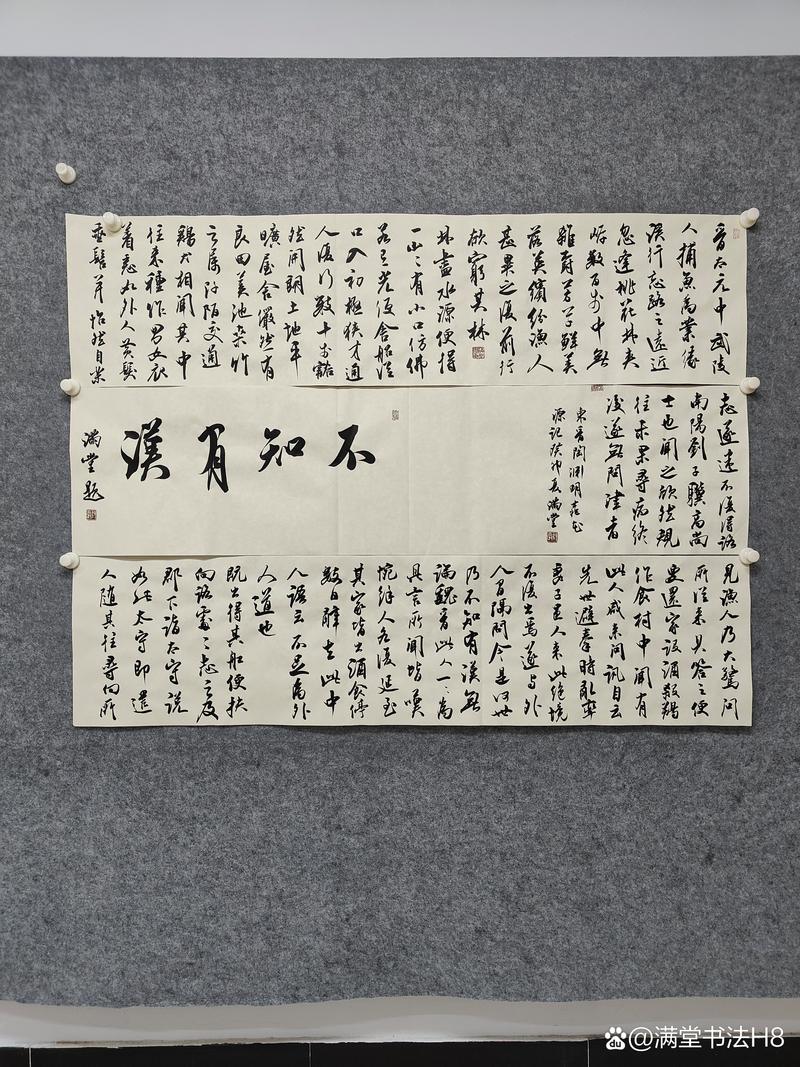 晋太元中武陵
人捕魚為業緣
溪行忘路之遠近
忽逢桃花林夹
岸數百步中無
雜樹芳草鮮美
落英繽紛漁人
甚異之復前行
欲窮其林
林盡水源便得
一山〻有小口仿佛
若有光便舍船從
口入初極狹才通
人復行數十步豁
然開朗土地平
曠屋舍儼然有
良田美池桑竹
之屬阡陌交通
鷄犬相聞其中
往来種作男女衣
着悉如外人黄髮
垂髫並怡然自樂
見漁人乃大驚問
所從来具答之便
要還家設酒殺鷄
作食村中聞有
此人咸来問訊自云
先世避秦時亂率
妻子邑人来此絕境
不復出焉遂与外
人間隔問今是何世
乃不知有漢無
論魏晋此人一〻為
具言所聞皆嘆
惋餘人各復延至
其家皆出酒食停
數日辭去此中
人語云不足為外
人道也
既出得其船便扶
向路處〻志之及
郡下詣太守説
如此太守即遣
人隨其往尋向所
志遂迷不復得路
南陽劉子驥高尚
士也聞之欣然規
往未果尋病終
後遂無問津者
東晋陶淵明桃花
源記癸卯夏滿堂
不知有漢
滿堂題
@满堂书法H8